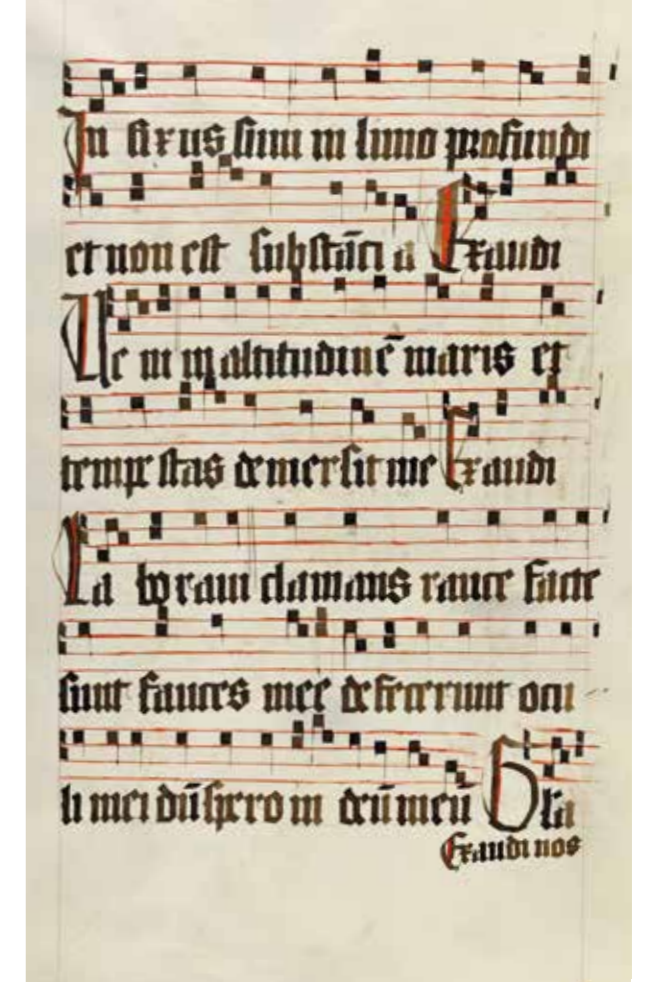 In fixus sum in limo profundi
et non est substãci a Exaudi
Ue ni in altitudinẽ maris et
tempe stas demersit me Exaudi
La bo raui clamans rauce facte
sunt fauces mee defecerunt ocu
li mei dũ spero in deũ meũ Gla
Exaudi nos